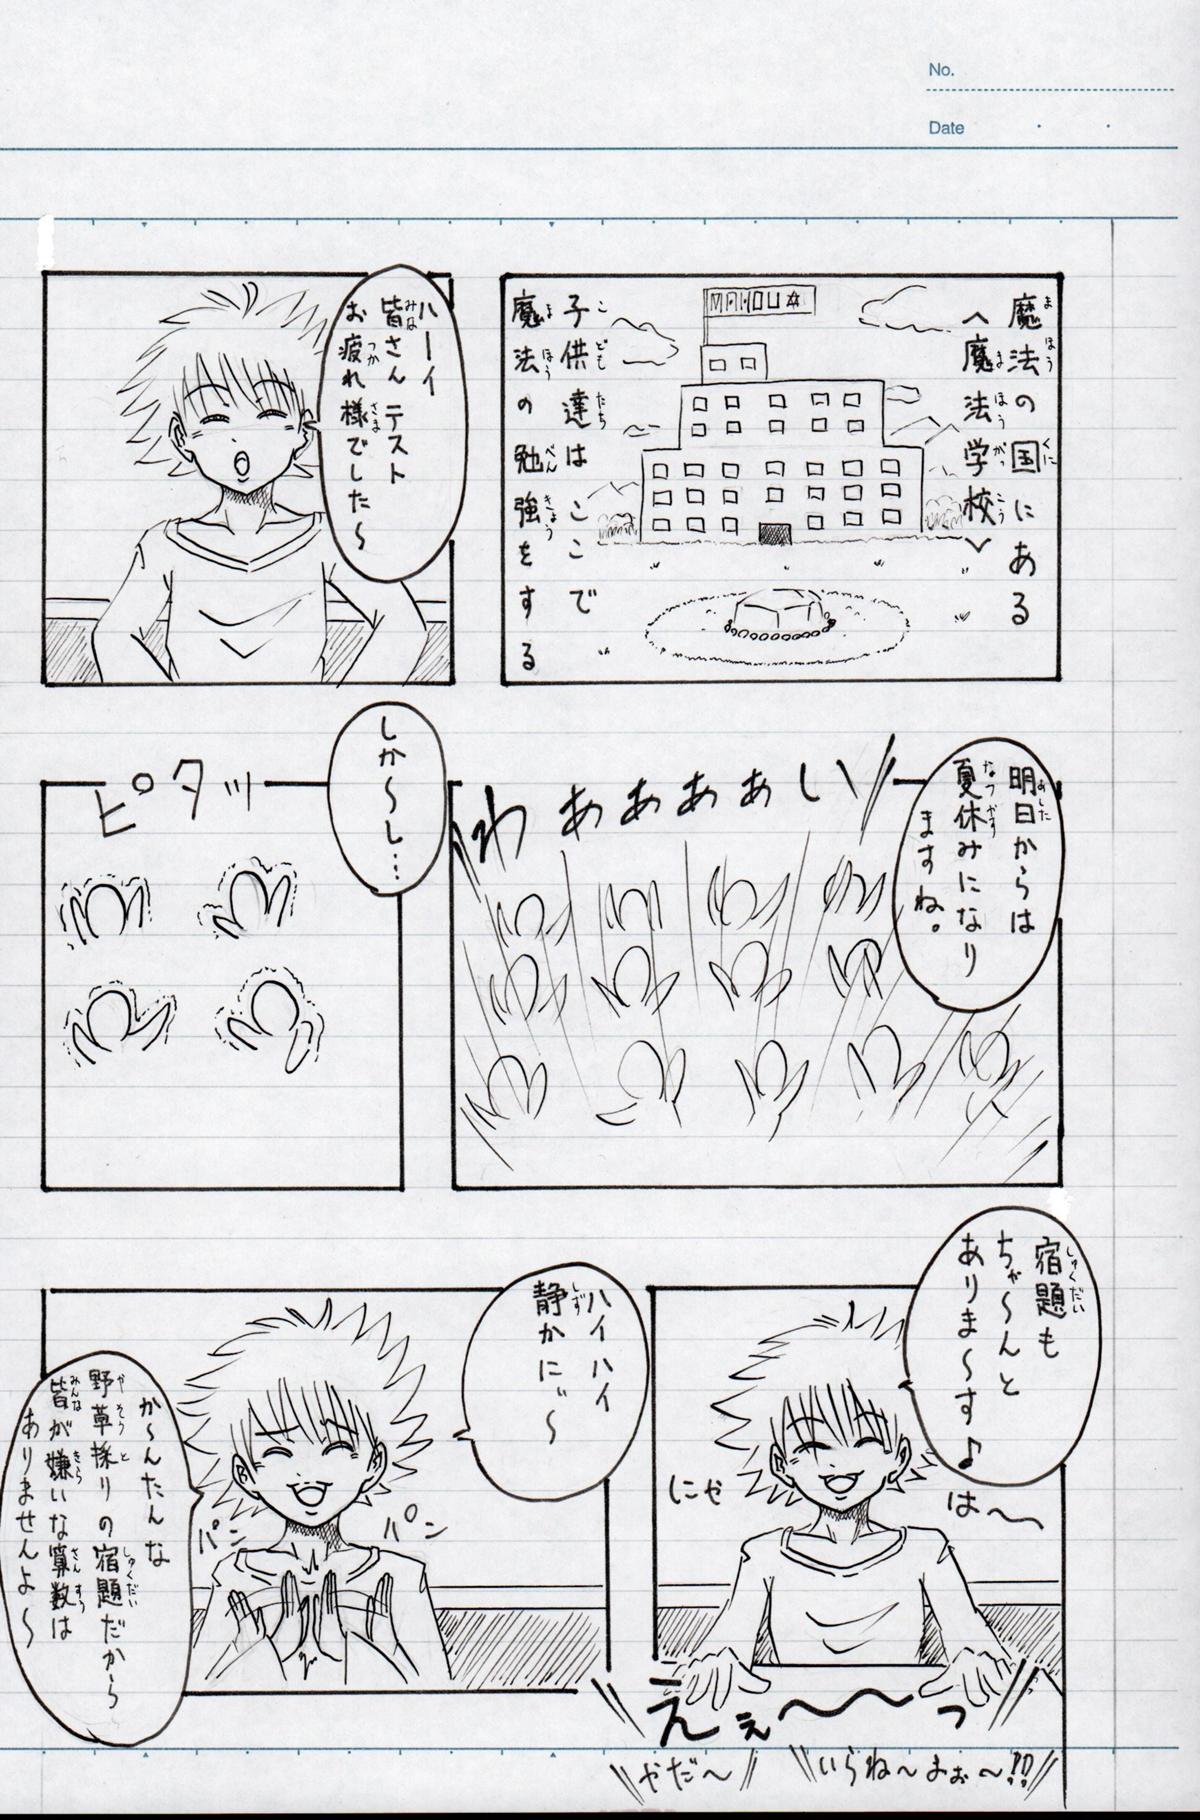 No.
Date
魔法の国にある
<魔法学校>
MAHOU
子供達はここで
魔法の勉強をする
ハーイ
皆さんテスト
お疲れ様でした〜
明日からは
夏休みになり
ますね。
わぁぁぁぁいッ
しか〜し…
ピタッ
宿題も
ちゃ〜んと
ありま〜す♪
は〜
にゃ
えぇ〜〜っ
いらね〜よぉ〜!!
やだ〜
ハイハイ
静かに〜
パン
パン
か〜んたんな
野草採りの宿題だから
皆が嫌いな算数は
ありませんよ〜